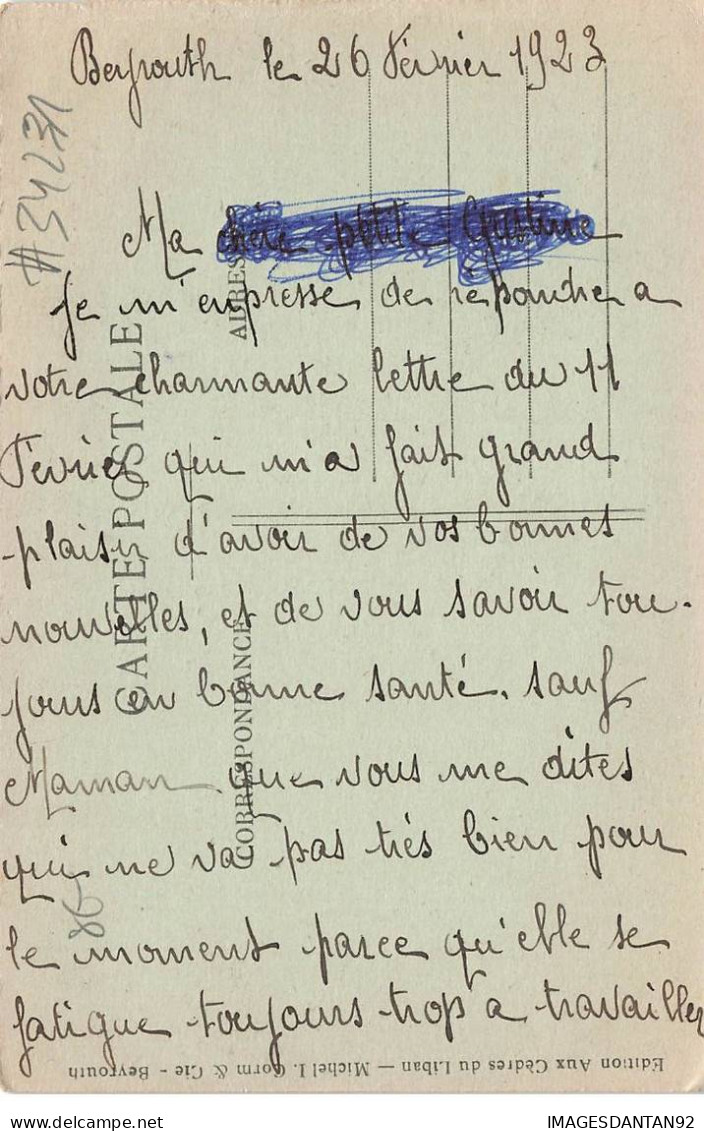 Beyrouth le 26 Février 1923
#34231
Ma chère ptite
Je m'enpresse de répondre a
votre charmante lettre du 11
Février qui m'a fait grand
plaisir d'avoir de vos bonnes
nouvelles, et de vous savoir tou-
jours en bonne santé. sauf
Maman que vous me dites
qui ne va pas très bien pour
le moment parce qu'elle se
fatigue toujours trop a travailler
CARTE POSTALE
CORRESPONDANCE
ADRESSE
Edition Aux Cèdres du Liban — Michel I. Corm & Cie - Beyrouth
delcampe.net
IMAGESDANTAN92